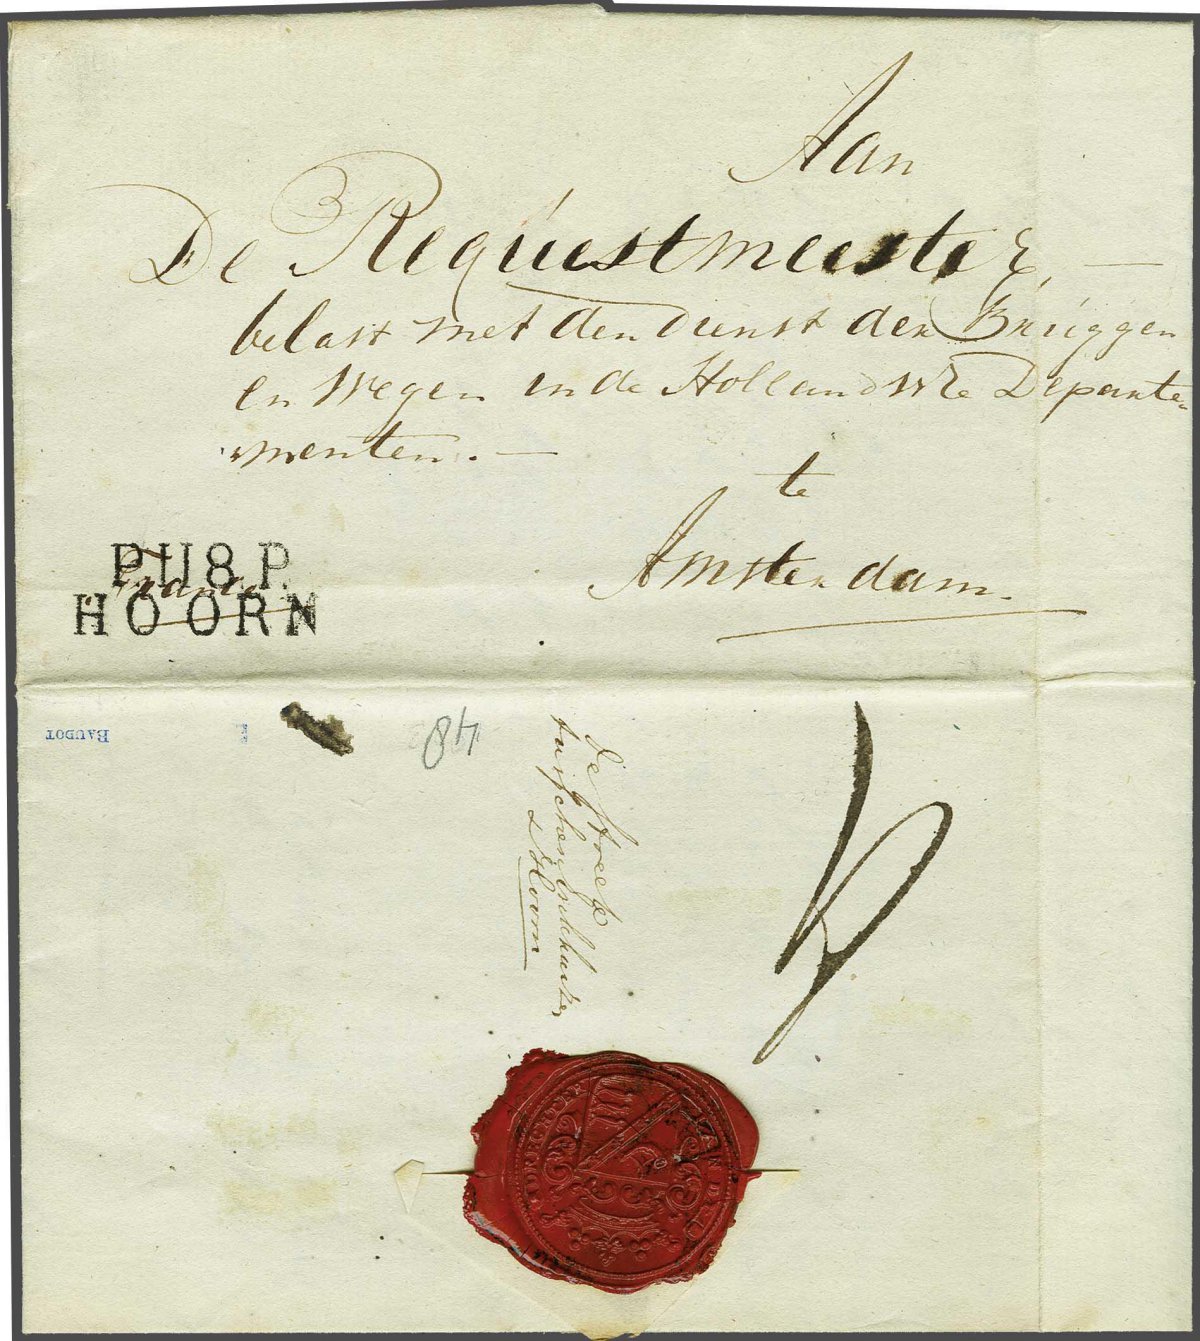 Aan
De Requestmeester, —
belast met den dienst der Bruggen
en Wegen in de Hollandsche Departe-
menten. —
te
Amsterdam.
P.118.P.
Franco
HOORN
BAUDOT
48
de
Hoorn
DRECHTER